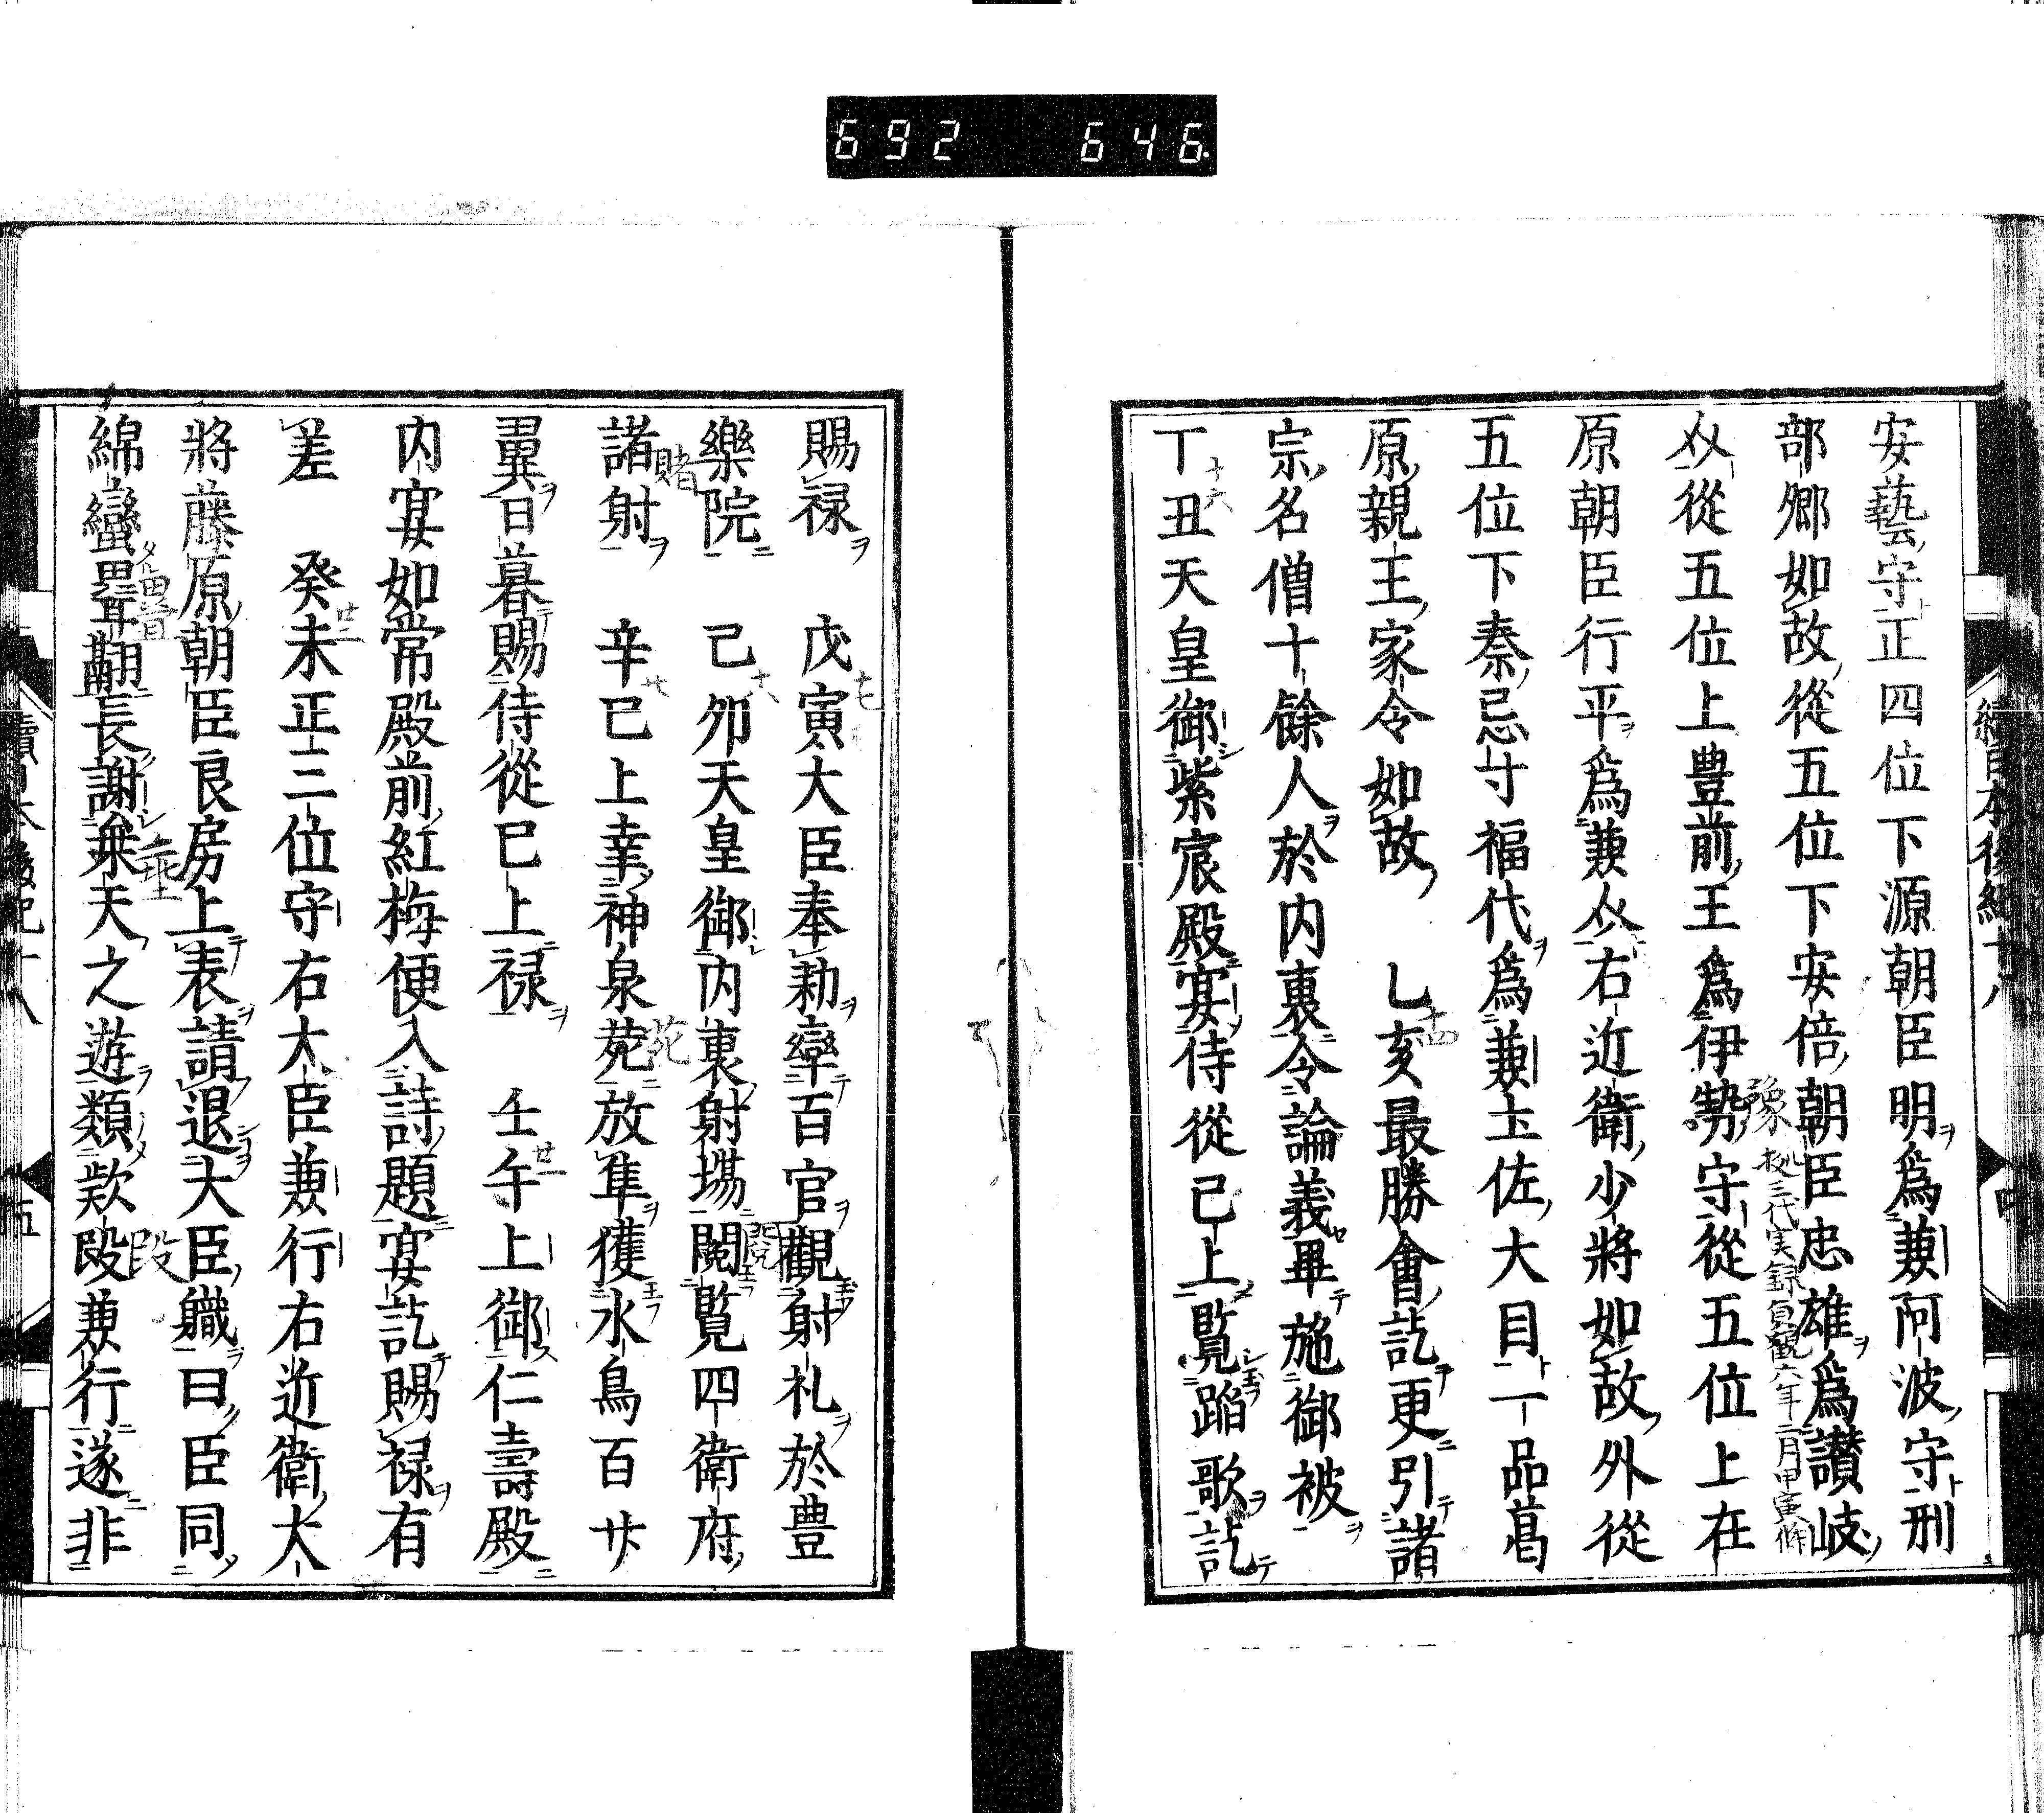 692 646
安藝守正四位下源朝臣明爲兼阿波守刑
部卿如故從五位下安倍朝臣忠雄爲讃岐
豫 拠三代実録貞観六年二月甲寅條
从從五位上豊前王爲伊勢守從五位上在
原朝臣行平爲兼从右近衛少將如故外從
五位下秦忌寸福代爲兼土佐大目一品葛
原親王家令如故 乙亥最勝會訖更引諸
十四
宗名僧十餘人於内裏令論義畢施御被
丁丑天皇御紫宸殿宴侍從已上覧蹈歌訖
十六
賜禄 戊寅大臣奉勅率百官觀射礼於豊
十七
樂院 己卯天皇御内裏射場閲覧四衛府
十八
諸射 辛巳上幸神泉苑放隼獲水鳥百廿
賭 廿 苑
翼日暮賜侍從已上禄 壬午上御仁壽殿
廿一
内宴如常殿前紅梅便入詩題宴訖賜禄有
差 癸未正三位守右大臣兼行右近衛大
廿二
將藤原朝臣良房上表請退大臣職曰臣同
段
綿蠻翻長謝乗天之遊類欵段兼行遂非
垂